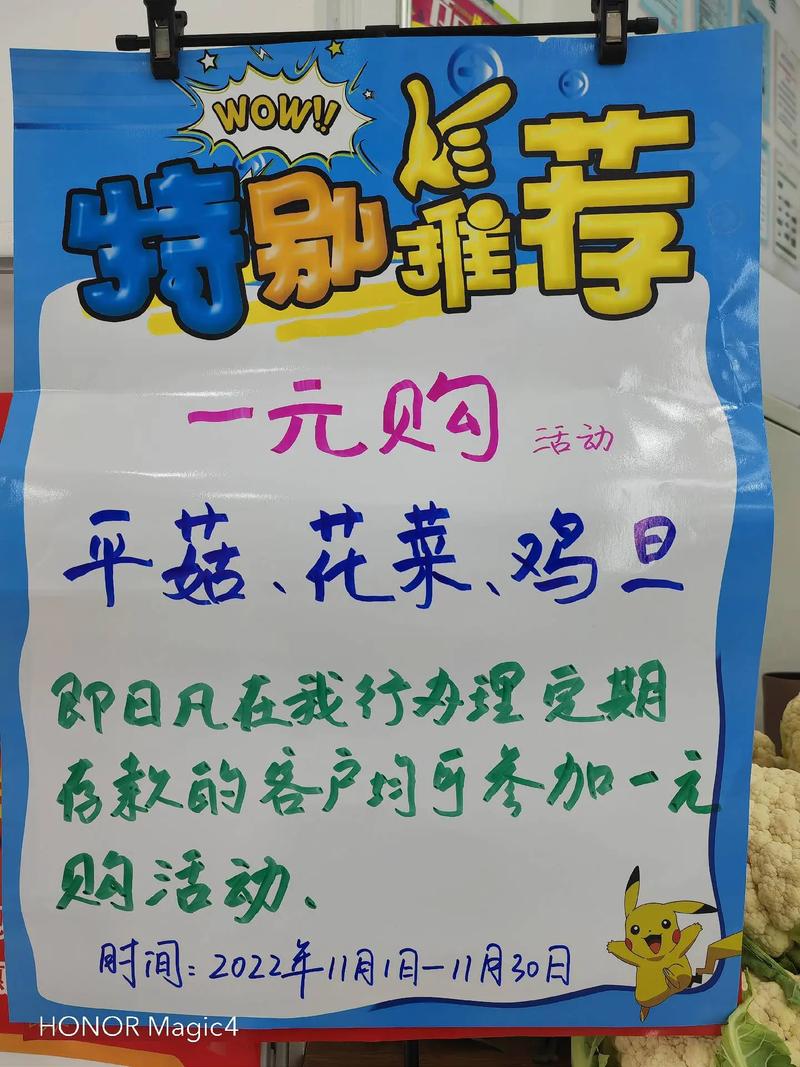 WOW!!
特别推荐
一元购 活动
平菇、花菜、鸡旦
即日凡在我行办理定期
存款的客户均可参加一元
购活动、
时间:2022年11月1日—11月30日
HONOR Magic4